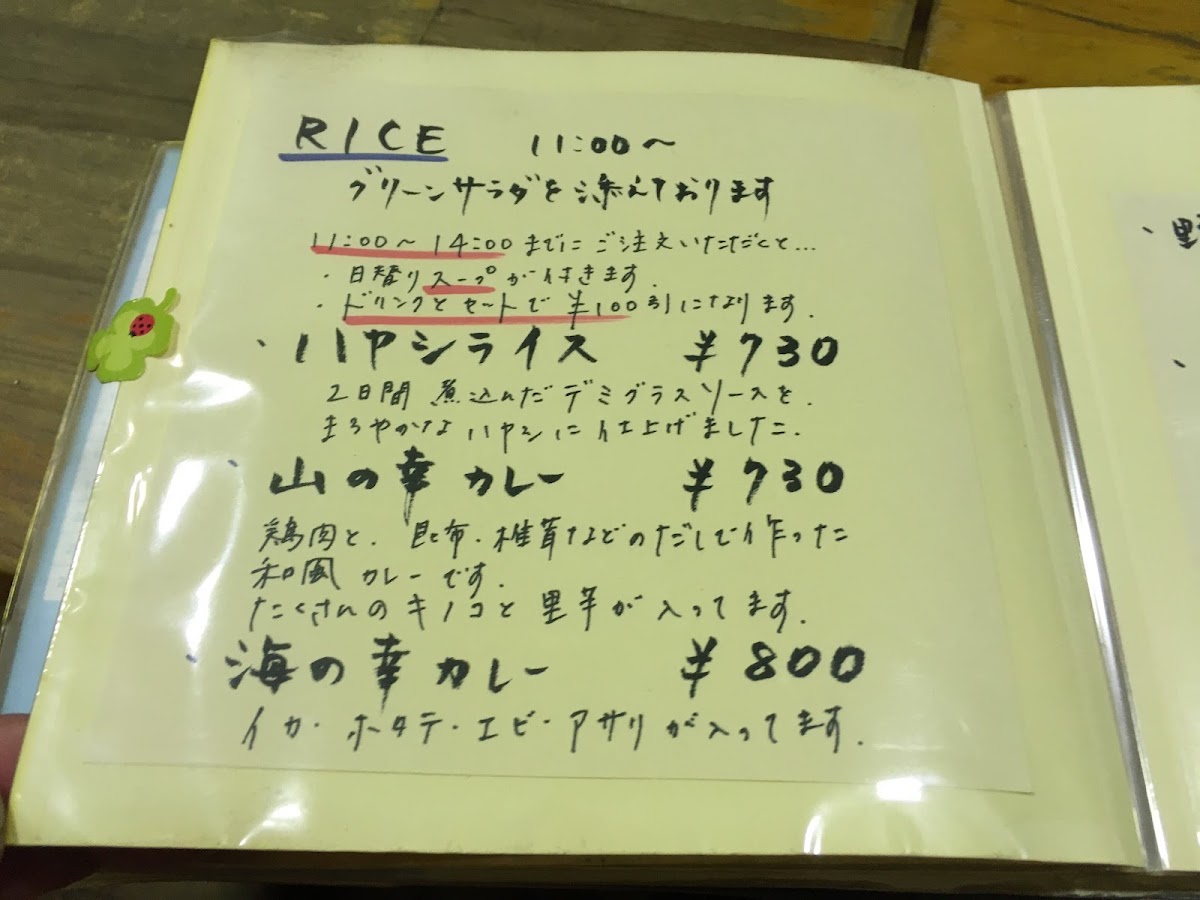 RICE 11:00〜
グリーンサラダを添えております
11:00〜14:00までにご注文いただくと...
・日替りスープが付きます.
・ドリンクとセットで¥100引になります.
・ハヤシライス ¥730
2日間煮込んだデミグラスソースを.
まろやかなハヤシに仕上げました.
・山の幸カレー ¥730
鶏肉と.昆布・椎茸などのだしで作った
和風カレーです.
たくさんのキノコと里芋が入ってます.
・海の幸カレー ¥800
イカ・ホタテ・エビ・アサリが入ってます.